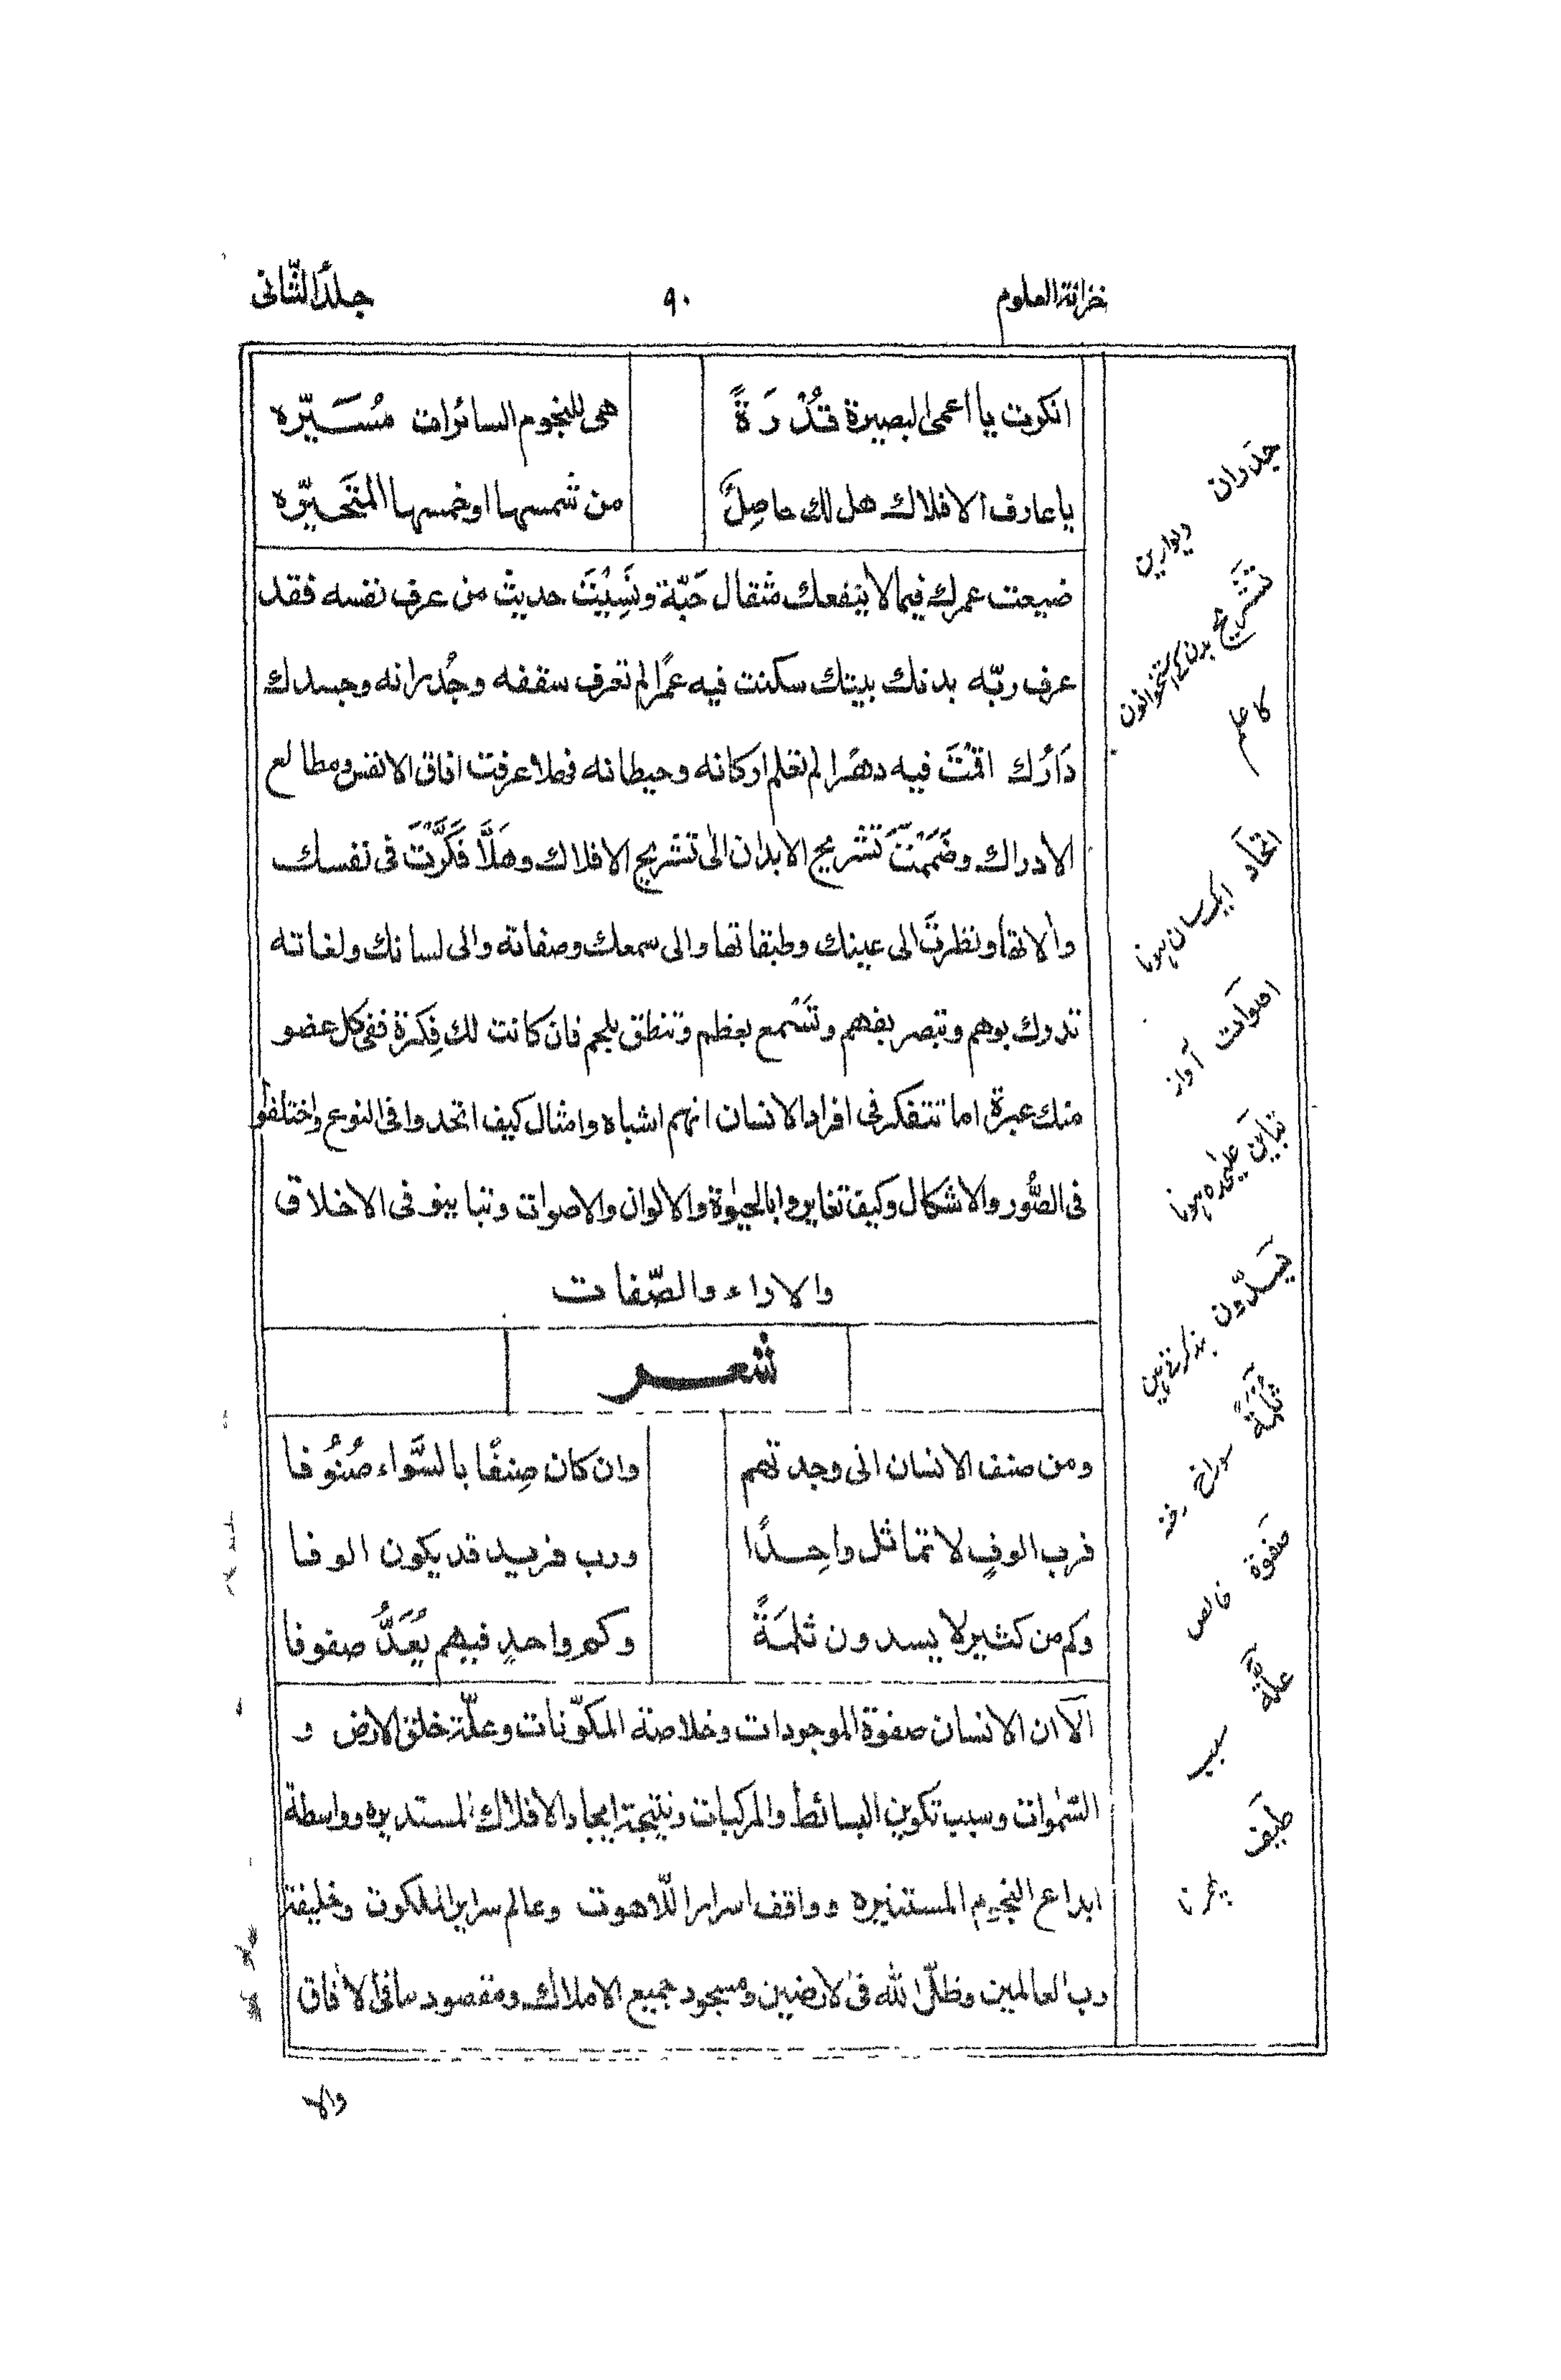 خزانة العلوم ٩٠ جلد الثانی
انكرت يا أعمى البصيرة قُدْرَةً هى للنجوم السائرات مُسَيّره
يا عارف الافلاك هل لك حاصِلٌ من شمسها اوخمسها المتَحَيّره
ضيعت عمرك فيما لا ينفعك مثقال حَبّة ونَسِيْتَ حديث من عرف نفسه فقد
عرف ربّه بدنك بيتك سكنت فيه عمرًا لم تعرف سقفه وجُدرانه وجسدك
دَارُك اقمْتَ فيه دهرًا لم تعلم اركانه وحيطانه فهلا عرفت افاق الانفس ومطالع
الادراك وضَمَمْتَ تَشريح الابدان الى تشريح الافلاك وهَلَّا فَكَّرْتَ فى نفسك
والاتها ونظرتَ الى عينك وطبقاتها والى سمعك وصفاته والى لسانك ولغاته
تدرك بوهم وتبصر بفهم وتَسْمع بعظم وتنطق بلحم فان كانت لك فِكرة ففى كل عضو
منك عبرة اما تتفكر فى افراد الانسان انهم اشباه وامثال كيف اتحدوا فى النوع واختلفوا
فى الصُّور والاشكال وكيف تغايروا بالحيٰوة والالوان والاصوات وتباينو فى الاخلاق
والاراء والصّفات
شعر
ومن صنف الانسان انى وجدتهم وان كان صِنفًا بالسَّواء صُنُوفا
فرب الوفٍ لا تماثل واحِدًا ورب فريد قد يكون الوفا
وكم من كثير لا يسدون ثلمَةً وكم واحدٍ فيهم يُعَدُّ صفوفا
اَلا ان الانسان صفوة الموجودات وخلاصة المكوّنات وعلّة خلق الارض و
السّمٰوات وسبب تكوين البسائط والمركبات ونتيجة ايجاد الافلاك المستديره وواسطة
ابداع النجوم المستنيره وواقف اسرار اللّاهوت وعالم سراير الملكوت وخليفة
رب العالمين وظلّ الله فى الارضين ومسجود جميع الاملاك ومقصود ما فى الافاق
والا
جدران
دیوارین
تَشریح بدن کے استخوانون
کا علم
اتحاد
ایکسان ہونا
اصوات
آواز
تباین علیحدہ ہونا
یَسدّون
بند کرتے ہین
ثلمَةً
سوراخ رخنہ
صفوة
خالص
علّة
سبب
طَیف
پھرنا